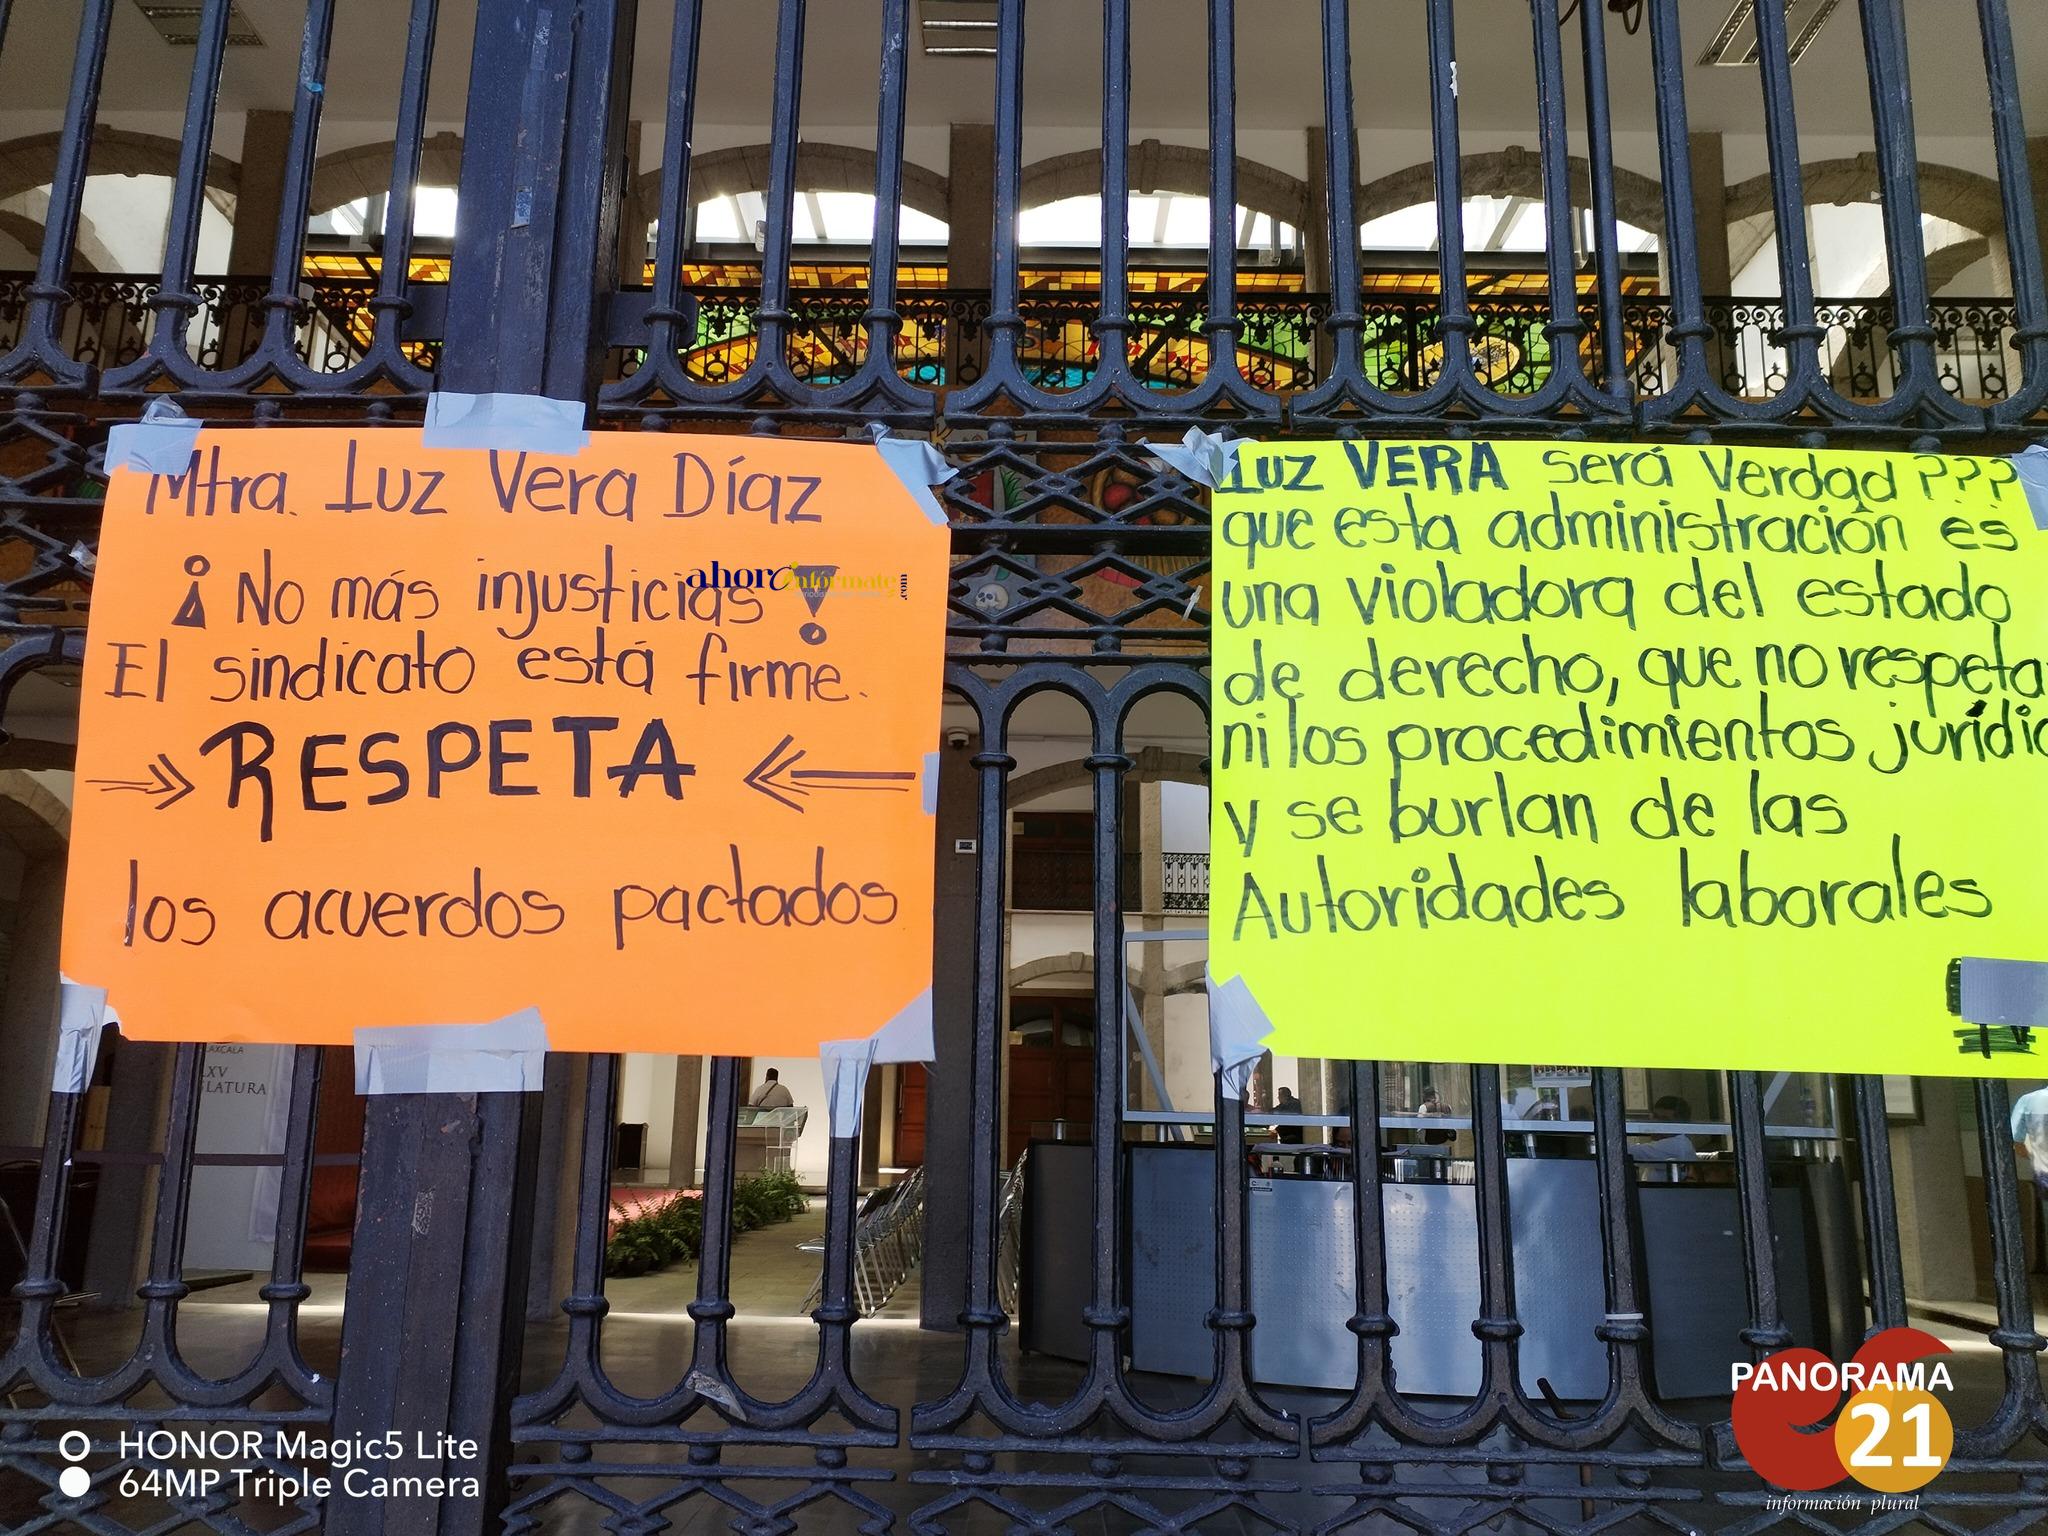 Mtra. Luz Vera Díaz
¡No más injusticias!
El sindicato está firme.
RESPETA
los acuerdos pactados
ahora infórmate.com
Luz VERA será verdad ???
que esta administración es
una violadora del estado
de derecho, que no respeta
ni los procedimientos jurídic
y se burlan de las
Autoridades laborales
LAXCALA
LXV
SLATURA
HONOR Magic5 Lite
64MP Triple Camera
PANORAMA
21
información plural